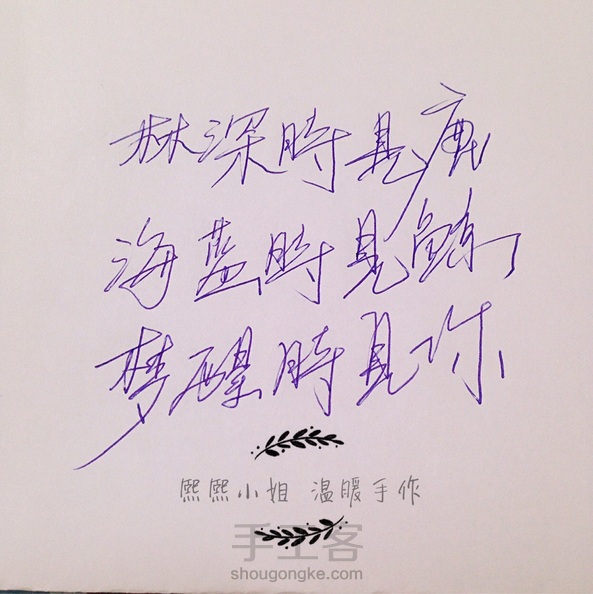 林深時見鹿
海蓝時見鲸
梦醒時見你
熙熙小姐 温暖手作
手工客
shougongke.com